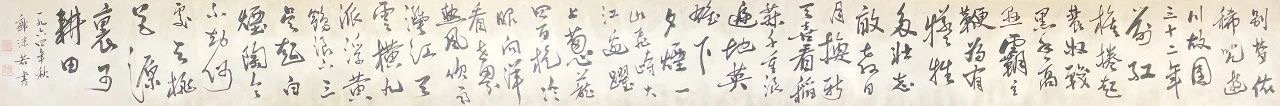 别梦依
稀咒逝
川故园
三十二年
前红
旗捲起
農奴戟
黑手高
悬霸主
鞭為有
犧牲
多壮志
敢教日
月換新
天喜看稻
菽千重浪
遍地英
雄下
夕煙一
山飛峙大
江邊躍
上葱蘢
四百旋冷
眼向洋
看世界
熱風吹雨
灑江天
雲橫九
派浮黄
鶴浪下三
吳起白
煙陶令
不知何
處去桃
花源
裏可
耕田
一九六四年秋
郭沫若書